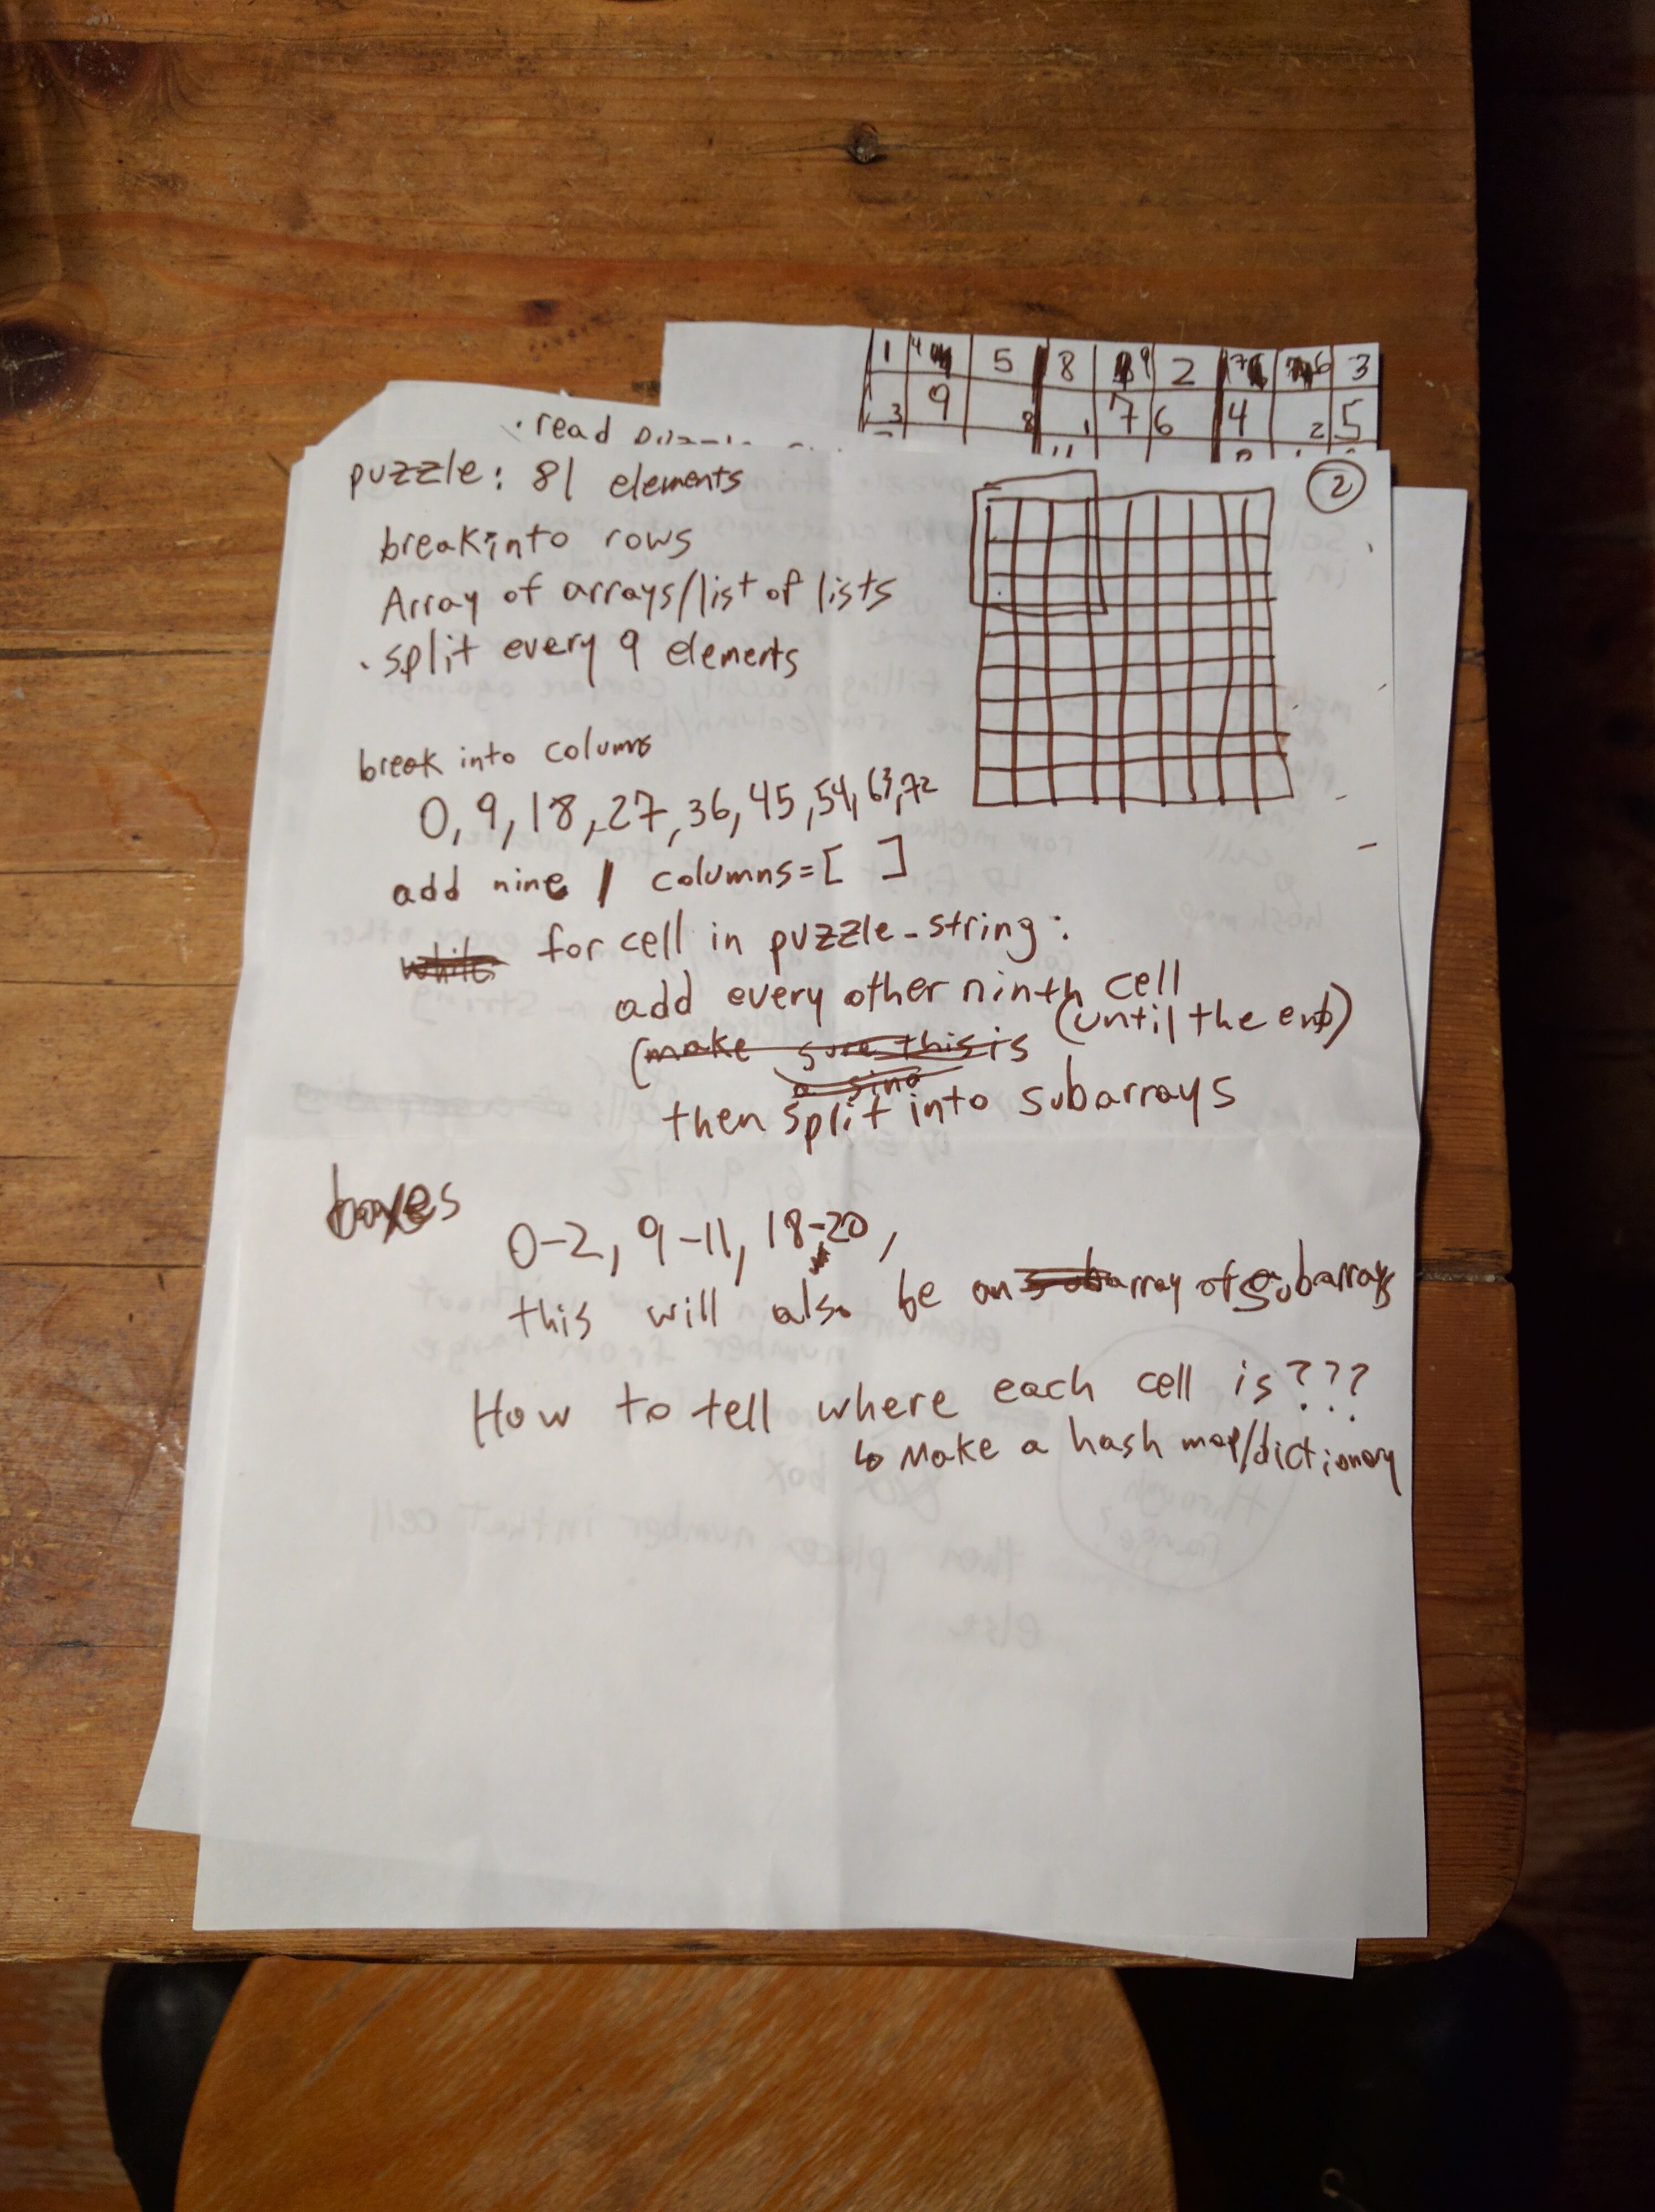 1 4 5 8 9 2 7 6 3
3 9 8 1 7 6 4 2 5
· read
2
puzzle: 81 elements
break into rows
Array of arrays/list of lists
· split every 9 elements
break into columns
0, 9, 18, 27, 36, 45, 54, 63, 72
add nine / columns = [ ]
while for cell in puzzle_string:
add every other ninth cell
(make sure this is (until the end)
a sing
then split into subarrays
boxes
0-2, 9-11, 18-20,
this will also be an subarray of subarrays
How to tell where each cell is???
↳ Make a hash map/dictionary